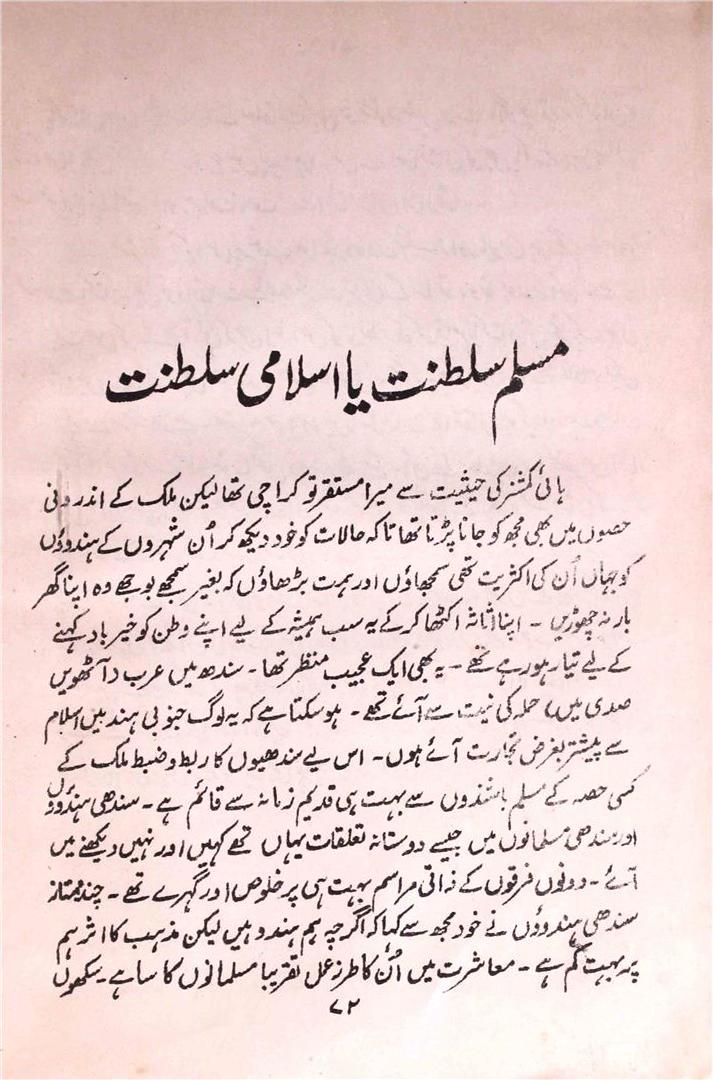 مسلم سلطنت یا اسلامی سلطنت
ہائی کمشنر کی حیثیت سے میرا مستقر تو کراچی تھا لیکن ملک کے اندرونی
حصوں میں بھی مجھ کو جانا پڑتا تھا تا کہ حالات کو خود دیکھ کر اُن شہروں کے ہندوؤں
کو جہاں اُن کی اکثریت تھی سمجھاؤں اور ہمت بڑھاؤں کہ بغیر سمجھے بوجھے وہ اپنا گھر
بار نہ چھوڑیں ۔ اپنا اثاثہ اکٹھا کر کے یہ سب ہمیشہ کے لیے اپنے وطن کو خیر باد کہنے
کے لیے تیار ہو رہے تھے ۔ یہ بھی ایک عجیب منظر تھا ۔ سندھ میں عرب (آٹھویں
صدی میں) حملہ کی نیت سے آئے تھے ۔ ہو سکتا ہے کہ یہ لوگ جنوبی ہند میں اسلام
سے پیشتر بغرض تجارت آئے ہوں ۔ اس لیے سندھیوں کا ربط و ضبط ملک کے
کسی حصہ کے مسلم باشندوں سے بہت ہی قدیم زمانہ سے قائم ہے ۔ سندھی ہندوؤں
اور سندھی مسلمانوں میں جیسے دوستانہ تعلقات یہاں تھے کہیں اور نہیں دیکھنے میں
آئے ۔ دونوں فرقوں کے ذاتی مراسم بہت ہی پر خلوص اور گہرے تھے ۔ چند ممتاز
سندھی ہندوؤں نے خود مجھ سے کہا کہ اگرچہ ہم ہندو ہیں لیکن مذہب کا اثر ہم
پر بہت کم ہے ۔ معاشرت میں اُن کا طرز عمل تقریبا مسلمانوں کا سا ہے ۔ سکھوں
۷۲